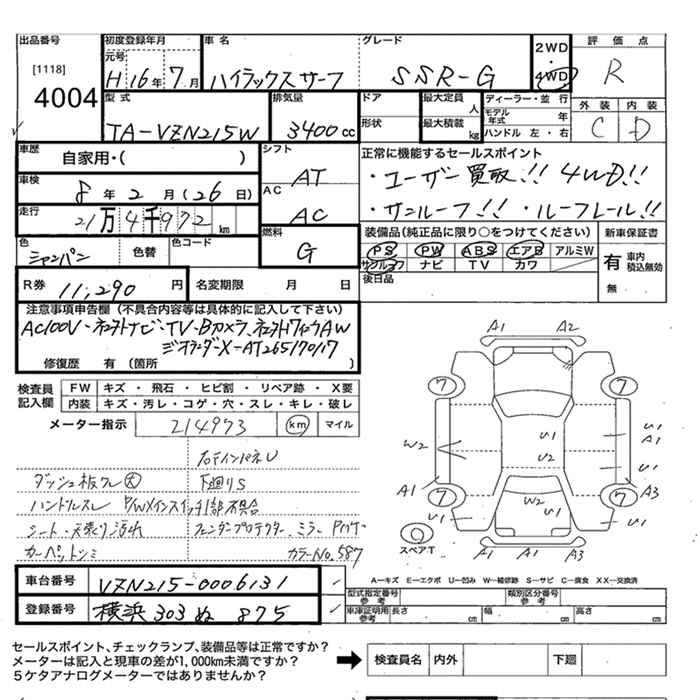 出品番号 初度登録年月 車名 グレード 2WD・4WD 評価点
[1118] 4004 元号 H16年7月 ハイラックスサーフ SSR-G R
型式 排気量 ドア 最大定員 人 ディーラー・並行 外装 内装
TA-VZN215W 3400cc 形状 最大積載 kg モデル年式 年 ハンドル 左・右 C D
車歴 自家用・( ) シフト AT 正常に機能するセールスポイント
車検 8年2月(26日) AC AC ・ユーザー買取!! 4WD!!
走行 21万4千972km ・サンルーフ!! ・ルーフレール!!
色 シャンパン 色替 色コード 燃料 G 装備品(純正品に限り○をつけてください) 新車保証書
PS PW ABS エアB アルミW 有 車内積込無効
サンルーフ ナビ TV カワ 無
R券 11,290円 名変期限 月 日 後日品
注意事項申告欄(不具合内容等は具体的に記入して下さい)
AC100V・社外ナビ・TV・Bカメラ、社外17インチAW
ジオランダーX-AT265/70/17
修復歴 有(箇所 )
検査員記入欄 FW キズ・飛石・ヒビ割・リペア跡・X要
内装 キズ・汚レ・コゲ・穴・スレ・キレ・破レ
メーター指示 214973 km マイル
右テインパネU
ダッシュ板ワレ大 下廻りS
ハンドルスレ P/Wメインスイッチ1部不具合
シート・天張り汚れ フェンダープロテクター、ミラー
カーペットシミ カラーNo.587
A1 A2
7 7
W2 U1 U1 A1
U1 U1
A1 W2 A3
7 7
U1 U1
スペアT A1 A1 A3
A―キズ E―エクボ U―凹み W―補修跡 S―サビ C―腐食 XX―交換済
車台番号 VZN215-0006131 型式指定番号 参考 類別区分番号 参考
登録番号 横浜 303 ぬ 875 車庫証明用 参考 長さ cm 幅 cm 高さ cm
セールスポイント、チェックランプ、装備品等は正常ですか?
メーターは記入と現車の差が1,000km未満ですか?
5ケタアナログメーターではありませんか?
検査員名 内外 下廻